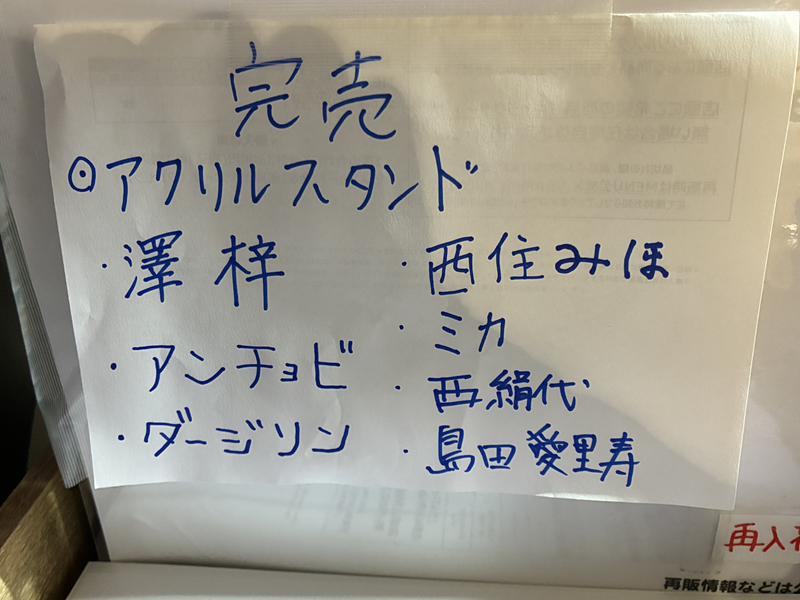 完売
⊙アクリルスタンド
・澤 梓
・アンチョビ
・ダージリン
・西住みほ
・ミカ
・西絹代
・島田愛里寿
再入
再販情報などは